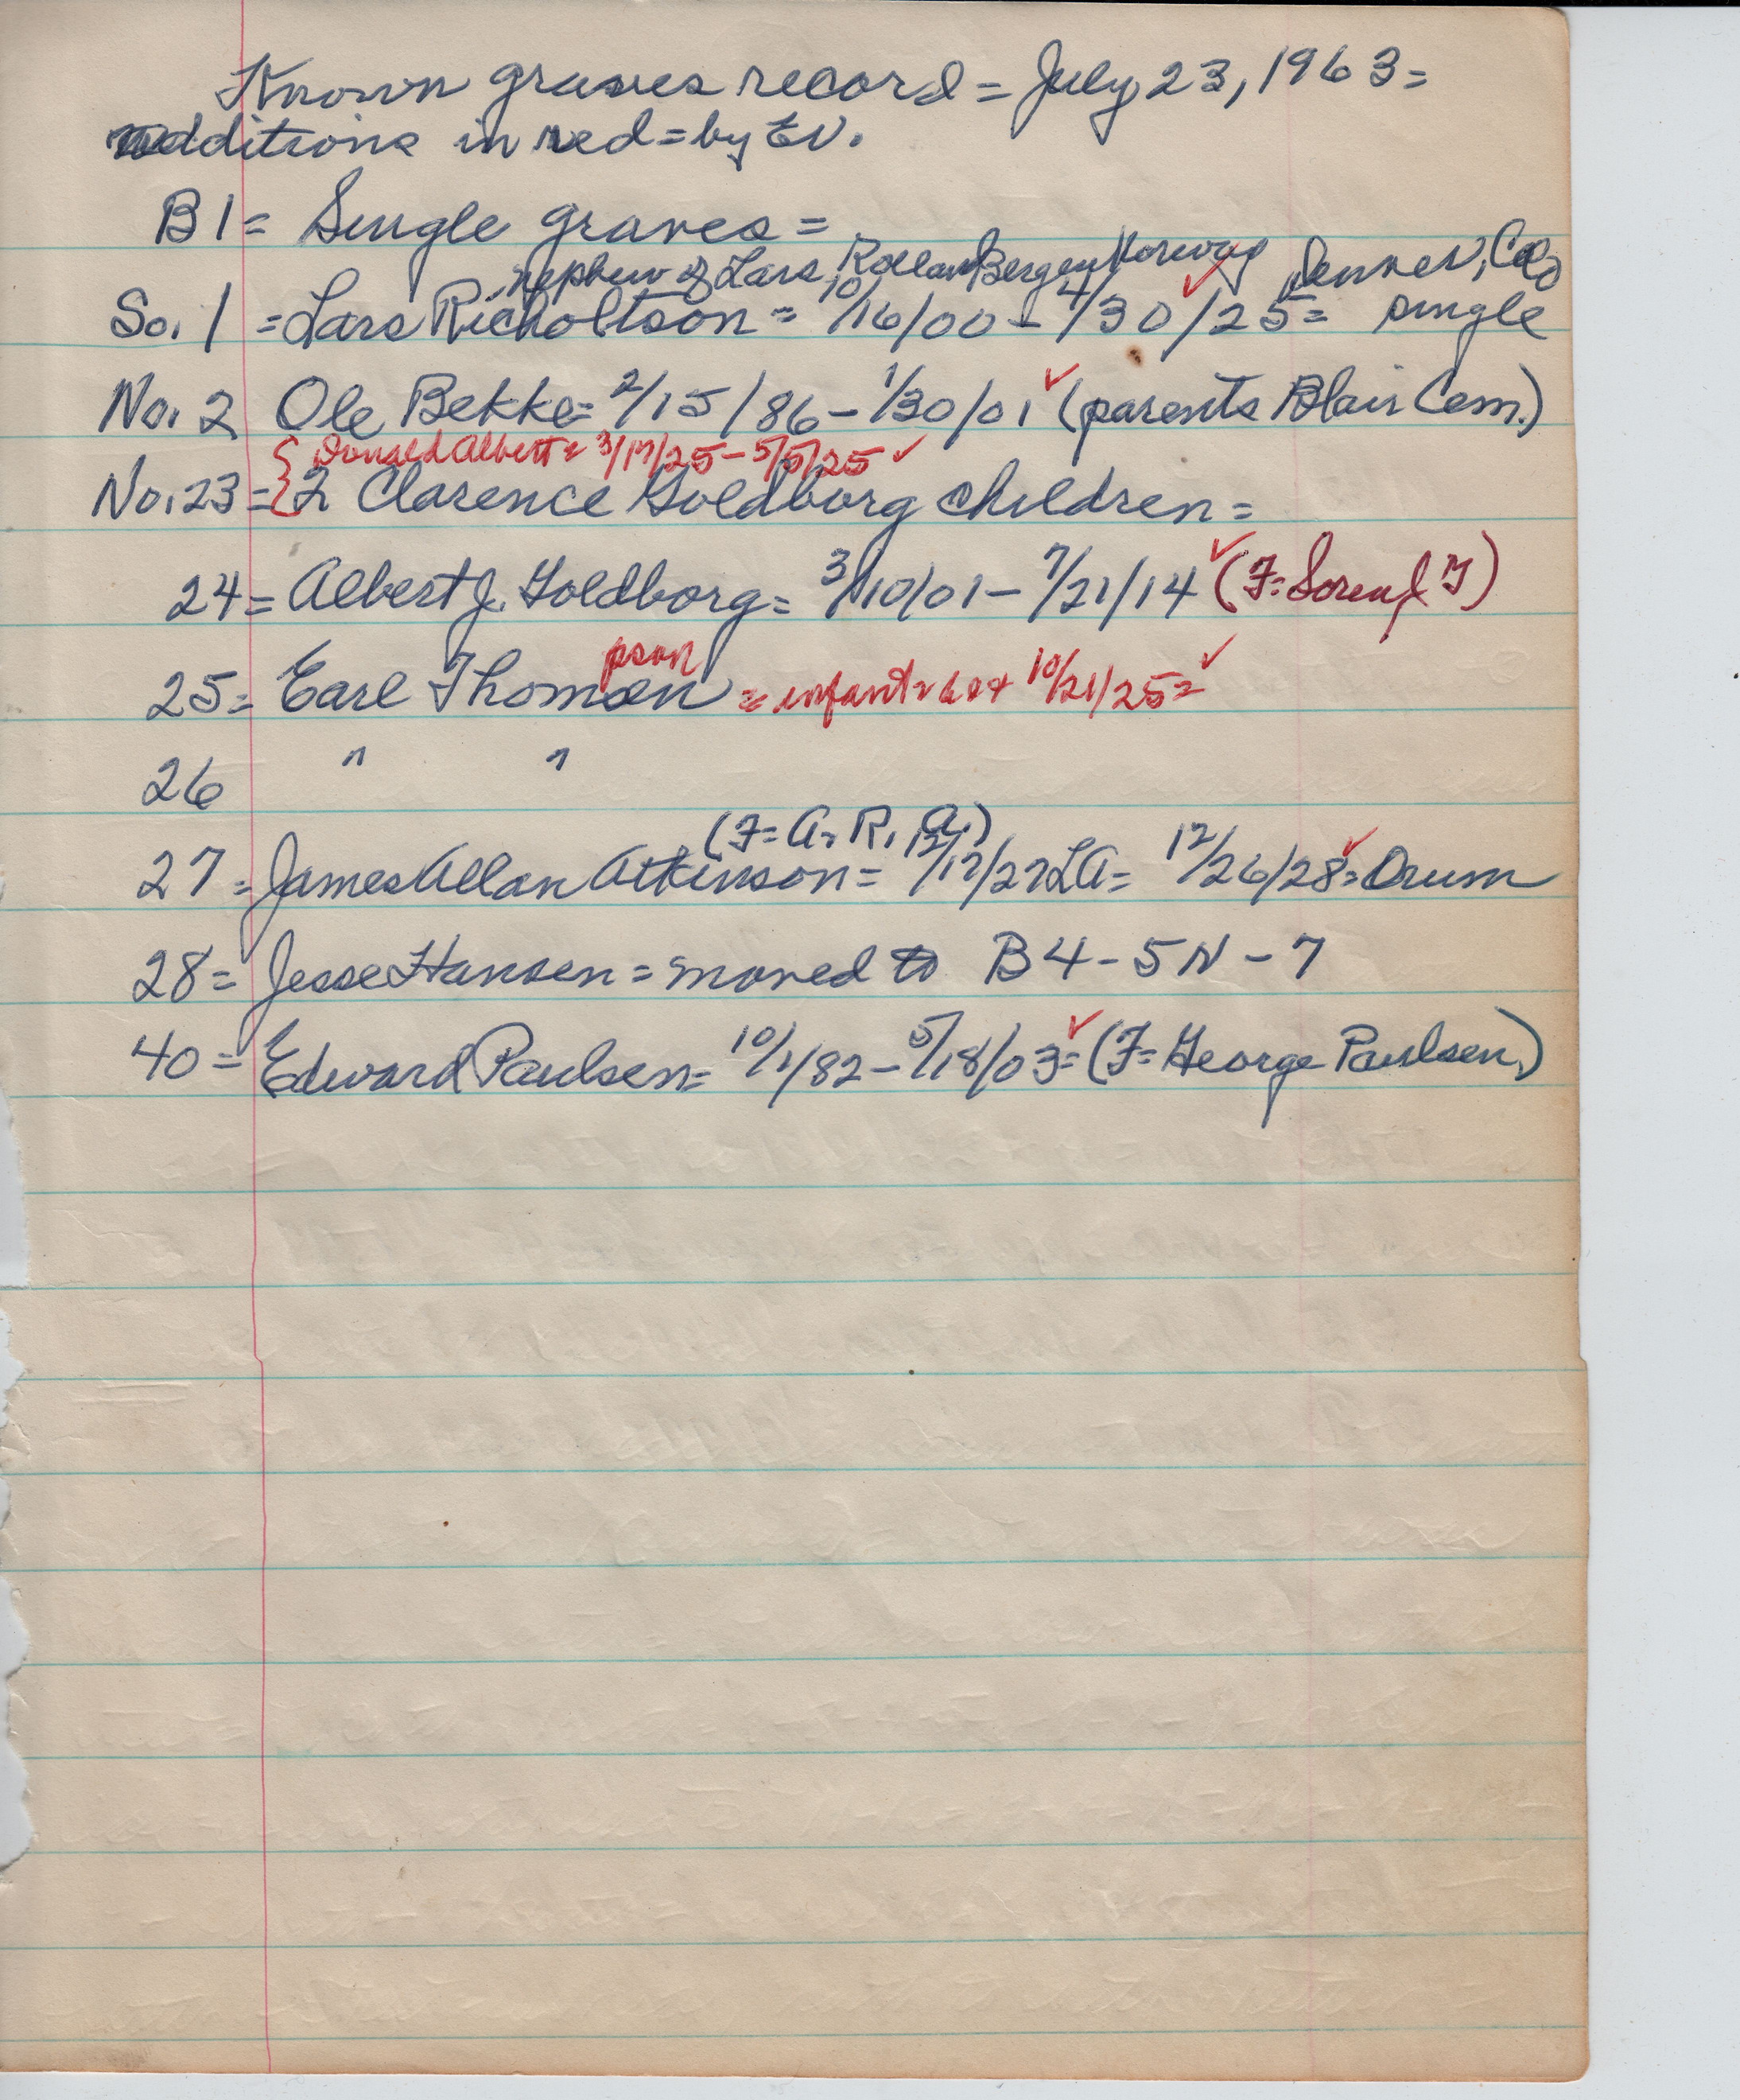 Known graves record = July 23, 1963 =
additions in red = by EV.
B1 = Single graves =
nephew of Lars, Bergen Norway Denver, Colo
So. 1 = Lars Richoltson = 10/16/00 - 4/30/25 = single
No. 2 Ole Bekke = 2/15/86 - 1/30/01 ✓ (parents Blair Cem.)
{ Donald Albert = 3/17/25 - 5/5/25 ✓
No. 23 = 2 Clarence Goldborg children =
24 = Albert J. Goldborg = 3/10/01 - 7/21/14 ✓ (F = Soren J G)
pson
25 = Earl Thomsen = infant = 10/21/25 = ✓
26 " "
(F = A. R. A.)
27 = James Allan Atkinson = 12/17/27 LA = 12/26/28 ✓ = Orum
28 = Jesse Hansen = moved to B4 - 5N - 7
40 = Edward Paulsen = 10/1/82 - 5/18/03 ✓ = (F = George Paulsen)